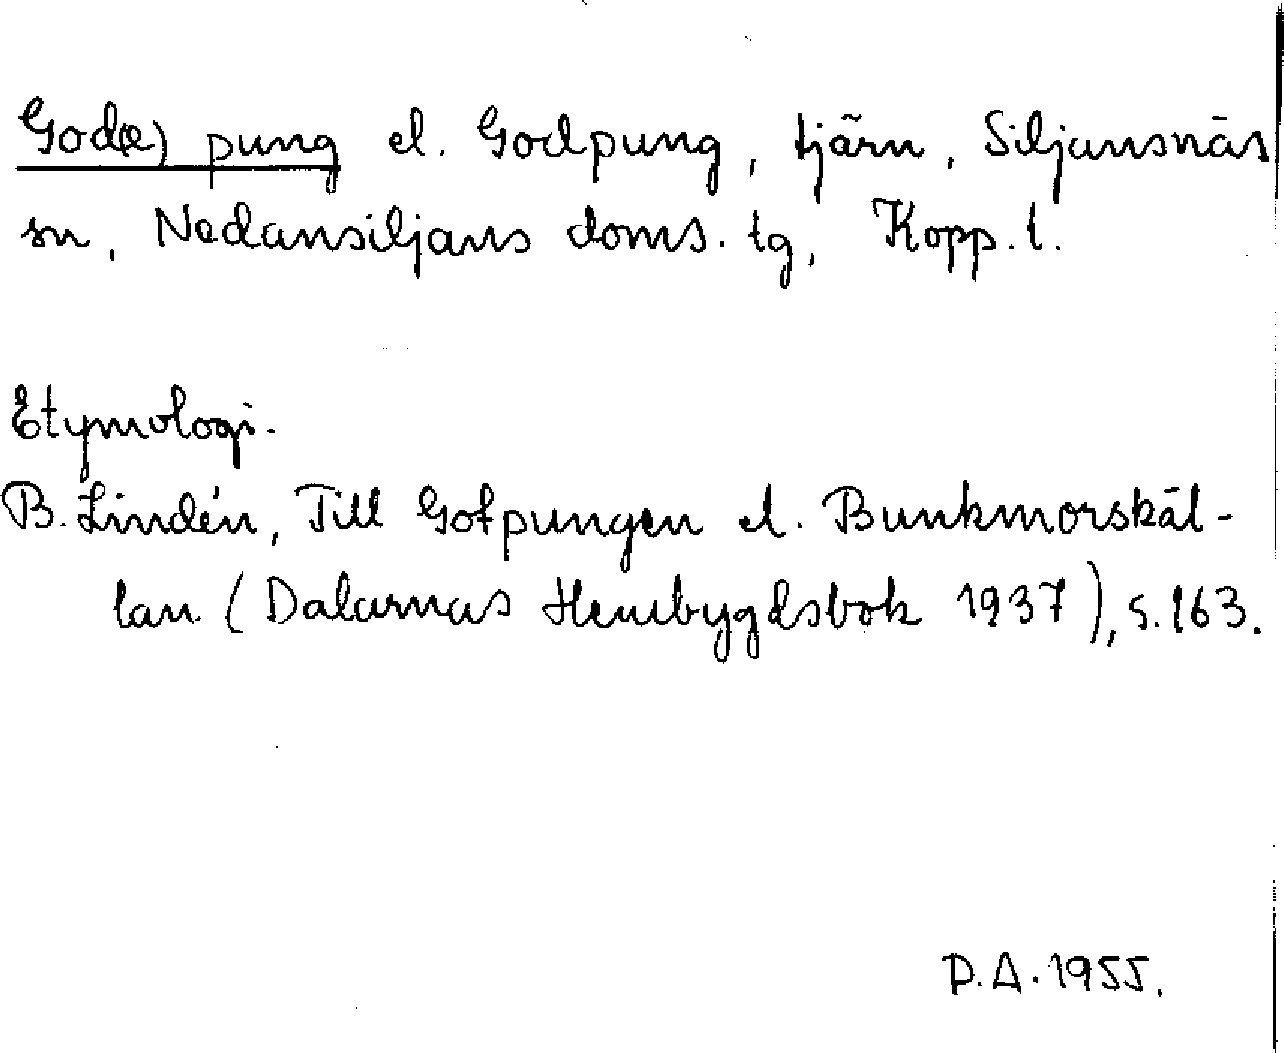 God(e) pung el. Godpung, tjärn, Siljansnäs
sn, Nedansiljans doms. tg, Kopp. l.
Etymologi.
B. Lindén, Till Gofpungen el. Bunkmorskäl-
lan (Dalarnas Hembygdsbok 1937), s. 163.
D.A. 1955.